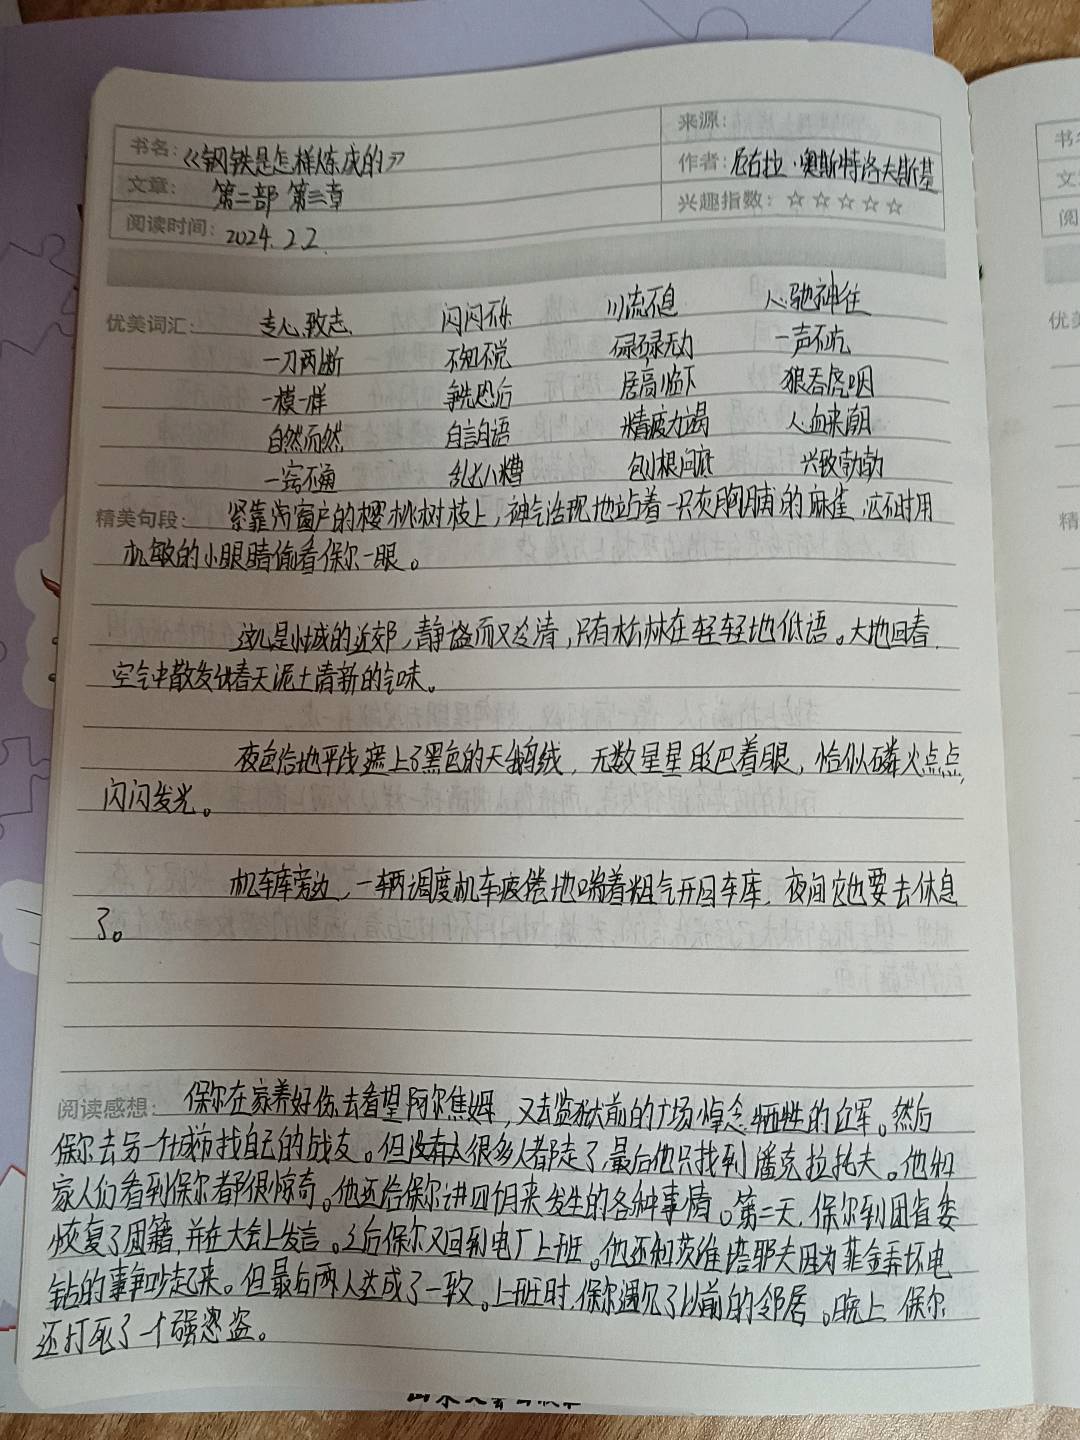 书名：《钢铁是怎样炼成的》
来源：
作者：尼古拉·奥斯特洛夫斯基
文章： 第二部 第三章
兴趣指数：☆☆☆☆☆
阅读时间： 2024.2.2.
优美词汇： 专心致志 闪闪发烁 川流不息 心驰神往
一刀两断 不知不觉 碌碌无为 一声不吭
一模一样 争先恐后 居高临下 狼吞虎咽
自然而然 自言自语 精疲力竭 心血来潮
一窍不通 乱七八糟 刨根问底 兴致勃勃
精美句段： 紧靠着窗户的樱桃树枝上，神气活现地站着一只灰胸脯的麻雀，它不时用
机敏的小眼睛偷看保尔一眼。
这儿是小城的近郊，静谧而又冷清，只有松林在轻轻地低语。大地回春，
空气中散发出春天泥土清新的气味。
夜色给地平线遮上了黑色的天鹅绒，无数星星眨巴着眼，恰似磷火点点，
闪闪发光。
机车库旁边，一辆调度机车疲倦地喘着粗气开回车库，夜间它也要去休息
了。
阅读感想： 保尔在家养好伤，去看望阿尔焦姆，又去监狱前的广场悼念牺牲的红军。然后
保尔去另一个城市找自己的战友。但没有 很多人都走了，最后他只找到潘克拉托夫。他和
家人们看到保尔都很惊奇。他还给保尔讲四个月来发生的各种事情。第二天，保尔到团省委
恢复了团籍，并在大会上发言。之后保尔又回到电厂上班。他还和茨维塔耶夫因为菲金弄坏电
钻的事争吵起来。但最后两人达成了一致。上班时，保尔遇见了以前的邻居。晚上 保尔
还打死了一个强盗。